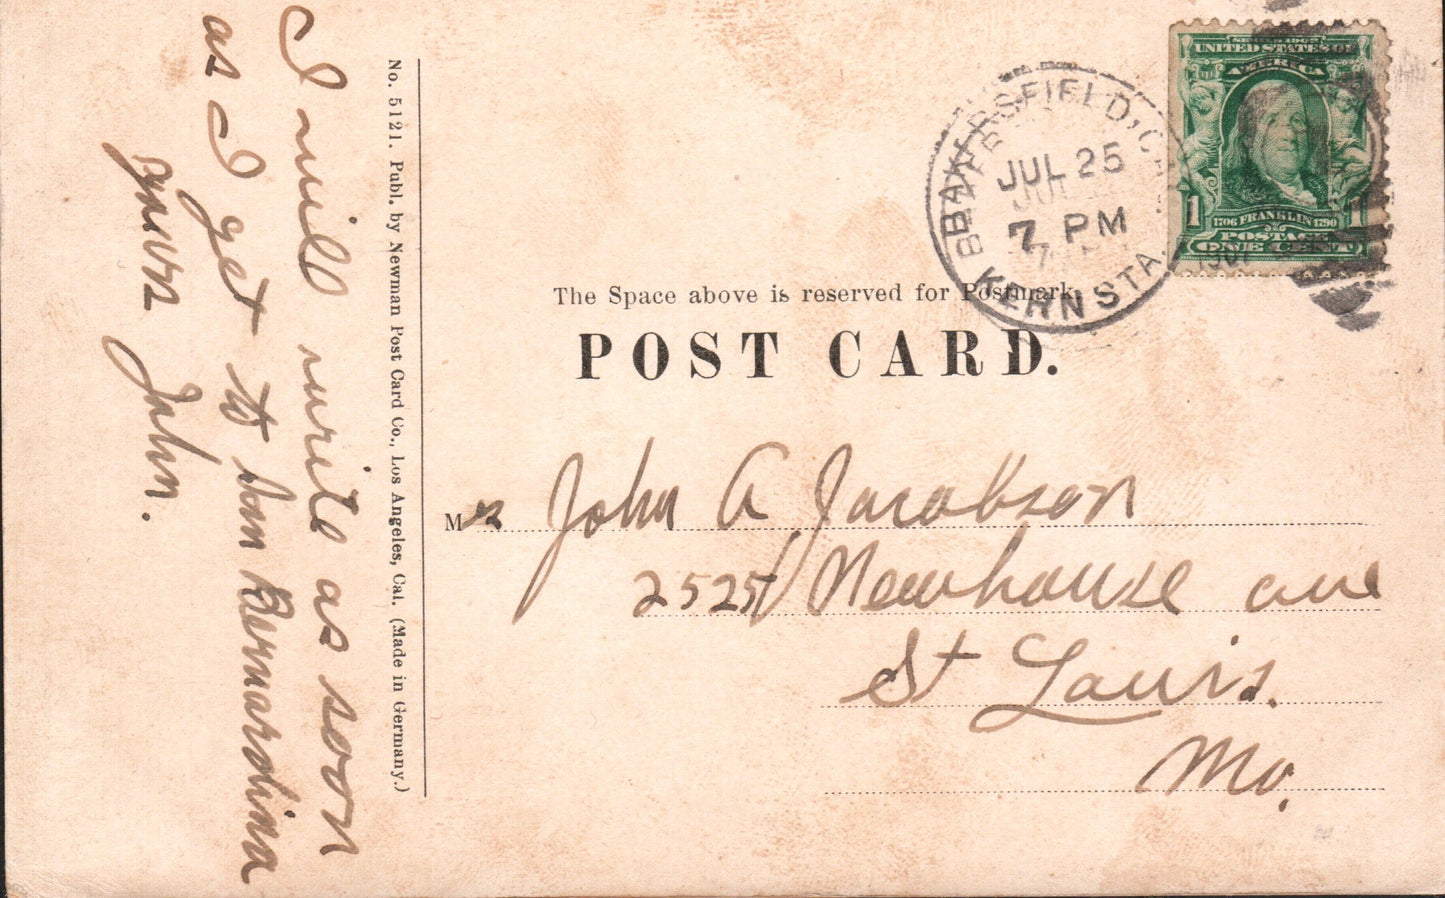 I will write as soon
as I get to San Bernardina
yours
John.
No. 5121. Publ. by Newman Post Card Co., Los Angeles, Cal. (Made in Germany.)
BAKERSFIELD, CAL
JUL 25
7 PM
KERN STA.
1907
SERIES 1902
UNITED STATES OF
AMERICA
1
1706 FRANKLIN 1790
1
POSTAGE
ONE CENT
The Space above is reserved for Postmark.
POST CARD.
John A Jacobson
2525 Newhouse ave
St Louis.
Mo.